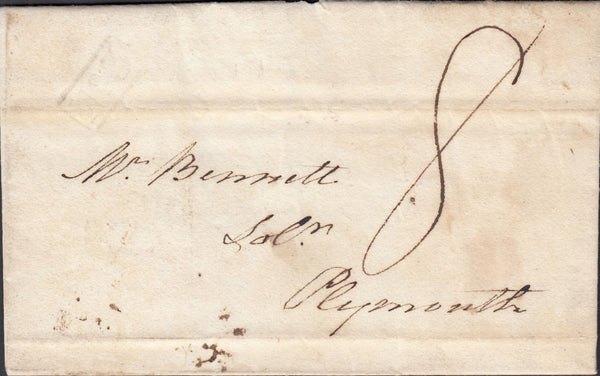 8
Mr. Bennett
Solr.
Plymouth